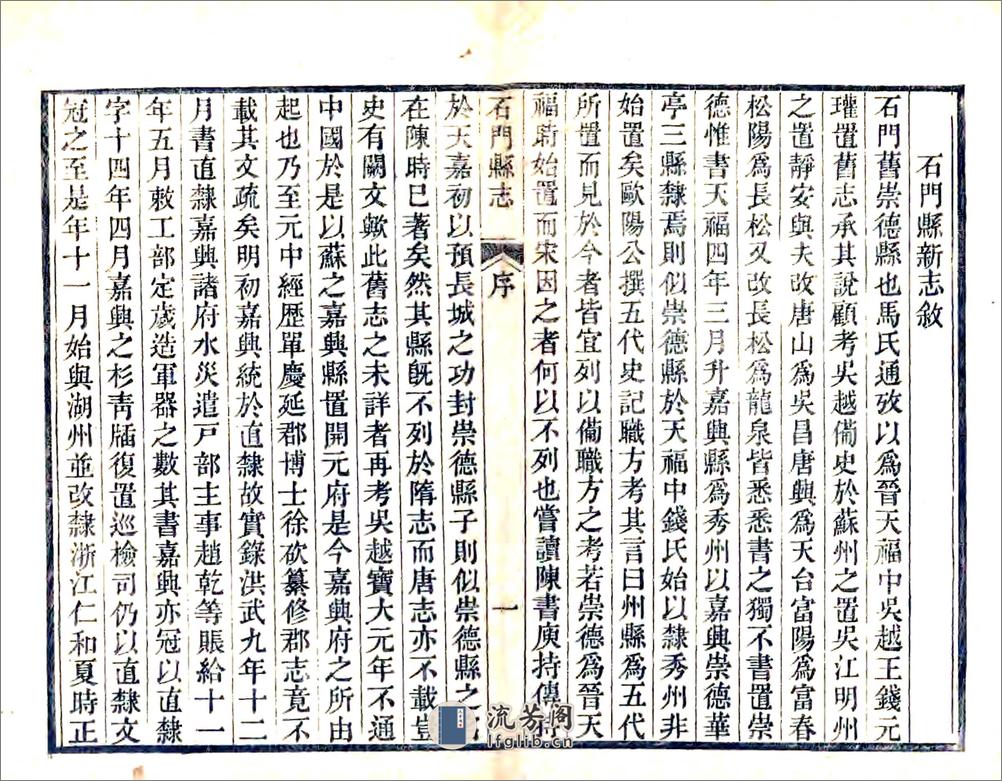 石門縣新志敘
石門舊崇德縣也馬氏通攷以爲晉天福中吳越王錢元
瓘置舊志承其說顧考吳越備史於蘇州之置吳江明州
之置靜安與夫改唐山爲吳昌唐興爲天台富陽爲富春
松陽爲長松又改長松爲龍泉皆悉悉書之獨不書置崇
德惟書天福四年三月升嘉興縣爲秀州以嘉興崇德華
亭三縣隸焉則似崇德縣於天福中錢氏始以隸秀州非
始置矣歐陽公撰五代史記職方考其言曰州縣爲五代
所置而見於今者皆宜列以備職方之考若崇德爲晉天
福時始置而宋因之者何以不列也嘗讀陳書庾持傳持
石門縣志
序
一
於天嘉初以預長城之功封崇德縣子則似崇德縣之
在陳時已著矣然其縣旣不列於隋志而唐志亦不載豈
史有闕文歟此舊志之未詳者再考吳越寶大元年不通
中國於是以蘇之嘉興縣置開元府是今嘉興府之所由
起也乃至元中經歷單慶延郡博士徐碩纂修郡志竟不
載其文疏矣明初嘉興統於直隸故實錄洪武九年十二
月書直隸嘉興諸府水災遣戸部主事趙乾等賑給十一
年五月敕工部定歲造軍器之數其書嘉興亦冠以直隸
字十四年四月嘉興之杉靑牐復置巡檢司仍以直隸文
冠之至是年十一月始與湖州並改隸浙江仁和夏時正
流芳阁
lfglib.cn